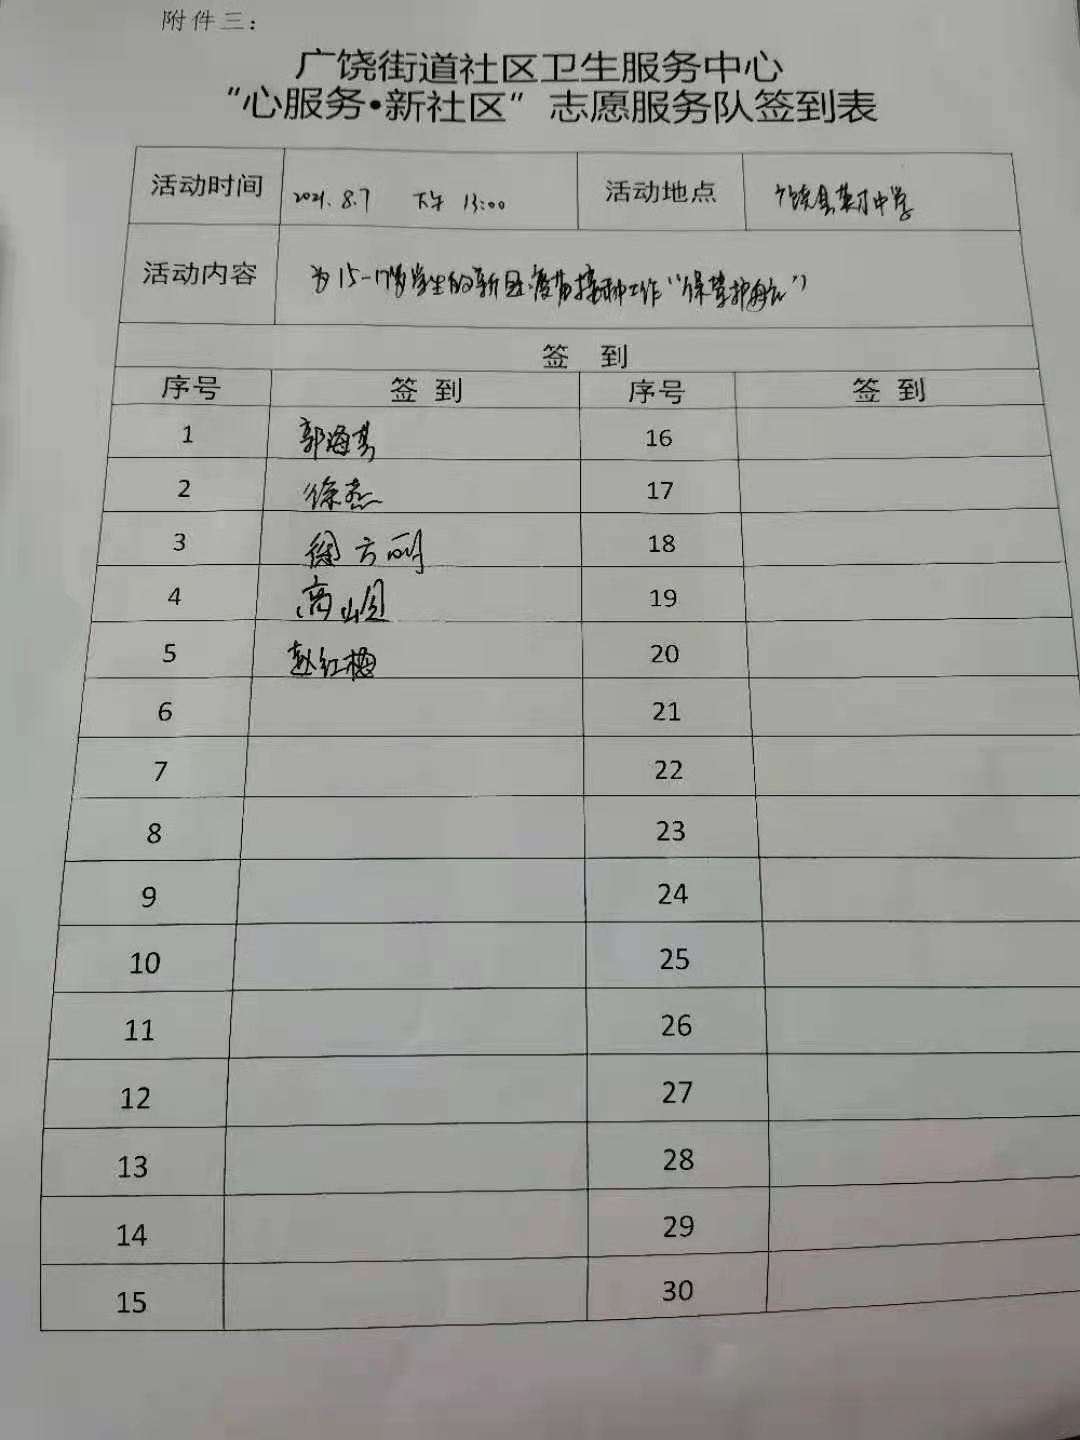 附件三：
广饶街道社区卫生服务中心
“心服务•新社区”志愿服务队签到表
活动时间 2021.8.7 下午 13:00 活动地点 广饶县英才中学
活动内容 为15-17岁学生的新冠疫苗接种工作“保驾护航”
签 到
序号 签到 序号 签到
1 郭海 16
2 徐杰 17
3 徐方刚 18
4 高山 19
5 赵红梅 20
6 21
7 22
8 23
9 24
10 25
11 26
12 27
13 28
14 29
15 30